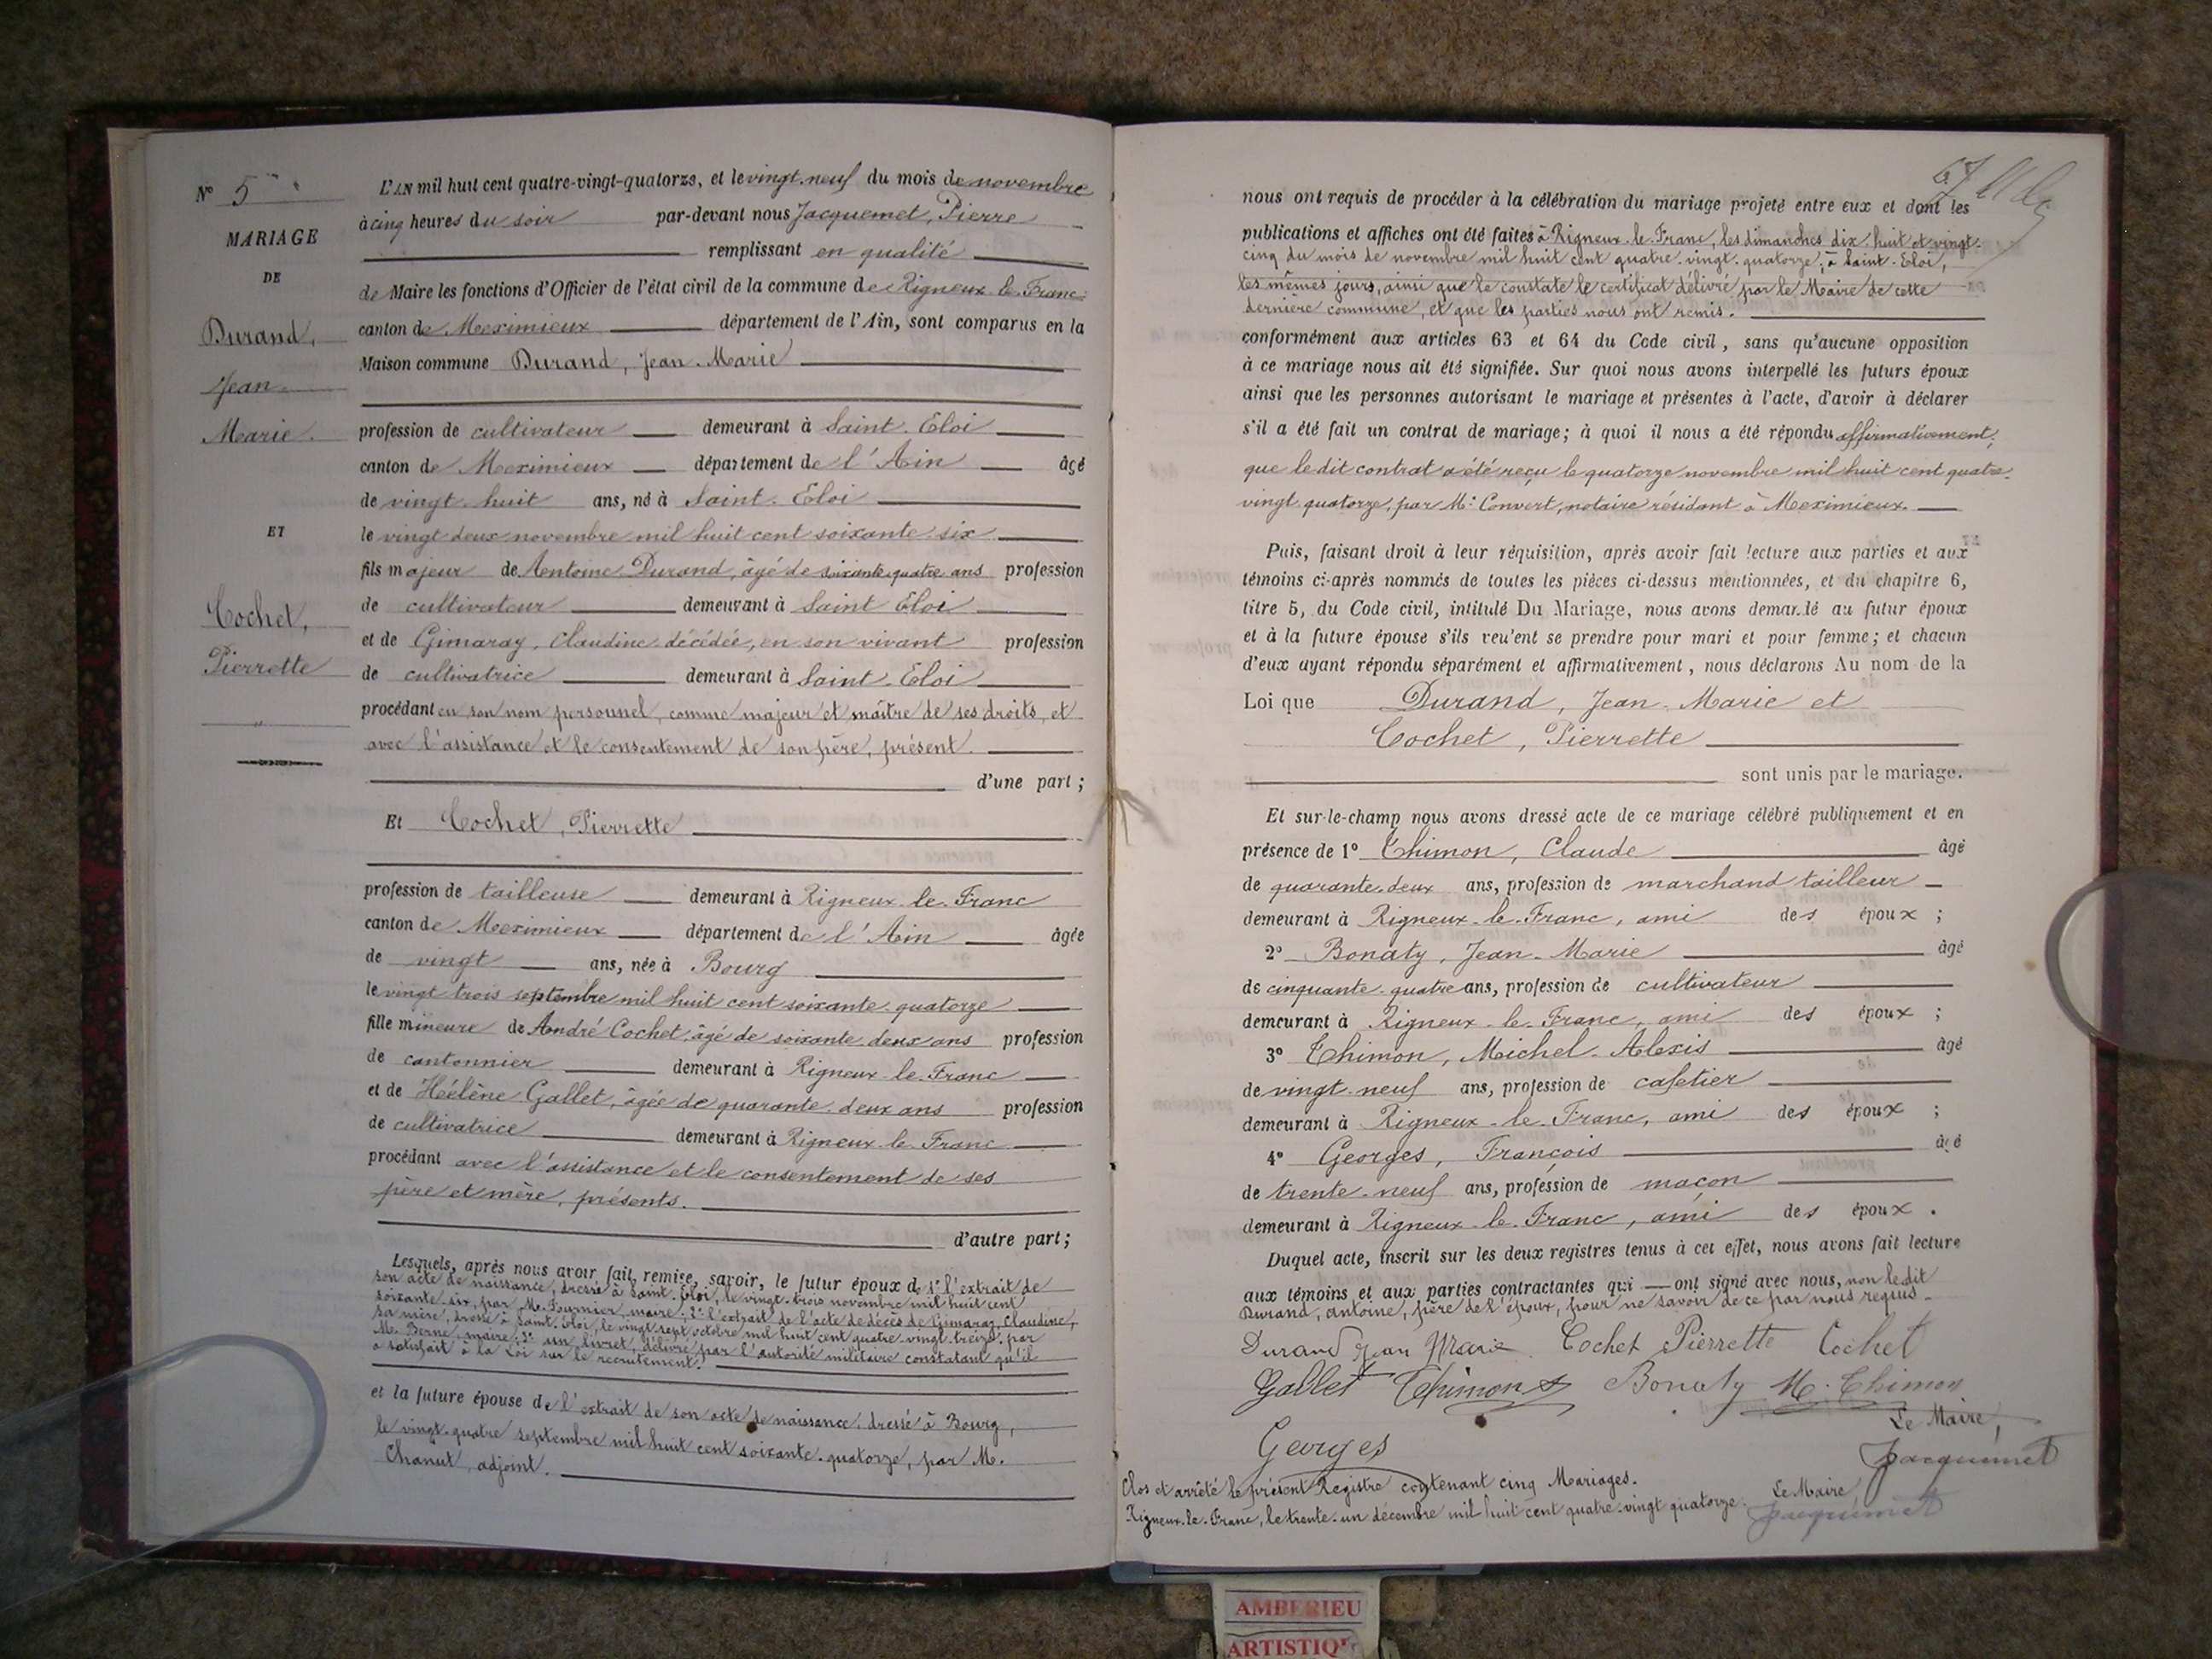 N° 5
MARIAGE
DE
Durand,
Jean
Marie
ET
Cochet,
Pierrette
L'AN mil huit cent quatre-vingt-quatorze, et le vingt-neuf du mois de novembre
à cinq heures du soir par-devant nous Jacquemet, Pierre
remplissant en qualité
de Maire les fonctions d'Officier de l'état civil de la commune de Rigneux-le-Franc
canton de Meximieux département de l'Ain, sont comparus en la
Maison commune Durand, Jean-Marie
profession de cultivateur demeurant à Saint-Eloi
canton de Meximieux département de l'Ain âgé
de vingt-huit ans, né à Saint-Eloi
le vingt deux novembre mil huit cent soixante-six
fils majeur de Antoine Durand, âgé de soixante-quatre ans profession
de cultivateur demeurant à Saint Eloi
et de Gimaray, Claudine décédée, en son vivant profession
de cultivatrice demeurant à Saint-Eloi
procédant en son nom personnel, comme majeur et maître de ses droits, et
avec l'assistance et le consentement de son père, présent.
d'une part ;
Et Cochet, Pierrette
profession de tailleuse demeurant à Rigneux-le-Franc
canton de Meximieux département de l'Ain âgée
de vingt ans, née à Bourg
le vingt trois septembre mil huit cent soixante-quatorze
fille mineure de André Cochet, âgé de soixante-deux ans profession
de cantonnier demeurant à Rigneux-le-Franc
et de Hélène Gallet, âgée de quarante-deux ans profession
de cultivatrice demeurant à Rigneux-le-Franc
procédant avec l'assistance et le consentement de ses
père et mère, présents.
d'autre part ;
Lesquels, après nous avoir fait remise, savoir, le futur époux de 1° l'extrait de
son acte de naissance, dressé à Saint-Eloi, le vingt-trois novembre mil huit cent
soixante-six, par M. Fournier, maire ; 2° l'extrait de l'acte de décès de Gimaray, Claudine,
sa mère, dressé à Saint-Eloi, le vingt-sept octobre mil huit cent quatre-vingt-treize, par
M. Berne, maire ; 3° un livret, délivré par l'autorité militaire constatant qu'il
a satisfait à la Loi sur le recrutement.
et la future épouse de l'extrait de son acte de naissance, dressé à Bourg,
le vingt-quatre septembre mil huit cent soixante-quatorze, par M.
Chanut, adjoint.
67
nous ont requis de procéder à la célébration du mariage projeté entre eux et dont les
publications et affiches ont été faites à Rigneux-le-Franc, les dimanches dix-huit et vingt-
cinq du mois de novembre mil huit cent quatre-vingt-quatorze, à Saint-Eloi,
les mêmes jours, ainsi que le constate le certificat délivré par le Maire de cette
dernière commune, et que les parties nous ont remis.
conformément aux articles 63 et 64 du Code civil, sans qu'aucune opposition
à ce mariage nous ait été signifiée. Sur quoi nous avons interpellé les futurs époux
ainsi que les personnes autorisant le mariage et présentes à l'acte, d'avoir à déclarer
s'il a été fait un contrat de mariage ; à quoi il nous a été répondu affirmativement,
que le dit contrat a été reçu le quatorze novembre mil huit cent quatre-
vingt-quatorze, par Me Convert, notaire résidant à Meximieux.
Puis, faisant droit à leur réquisition, après avoir fait lecture aux parties et aux
témoins ci-après nommés de toutes les pièces ci-dessus mentionnées, et du chapitre 6,
titre 5, du Code civil, intitulé Du Mariage, nous avons demandé au futur époux
et à la future épouse s'ils veulent se prendre pour mari et pour femme ; et chacun
d'eux ayant répondu séparément et affirmativement, nous déclarons Au nom de la
Loi que Durand, Jean-Marie et
Cochet, Pierrette
sont unis par le mariage.
Et sur-le-champ nous avons dressé acte de ce mariage célébré publiquement et en
présence de 1° Thimon, Claude âgé
de quarante-deux ans, profession de marchand tailleur
demeurant à Rigneux-le-Franc, ami des époux ;
2° Bonaty, Jean-Marie âgé
de cinquante-quatre ans, profession de cultivateur
demeurant à Rigneux-le-Franc, ami des époux ;
3° Thimon, Michel-Alexis âgé
de vingt-neuf ans, profession de cafetier
demeurant à Rigneux-le-Franc, ami des époux ;
4° Georges, François âgé
de trente-neuf ans, profession de maçon
demeurant à Rigneux-le-Franc, ami des époux.
Duquel acte, inscrit sur les deux registres tenus à cet effet, nous avons fait lecture
aux témoins et aux parties contractantes qui ont signé avec nous, non le dit
Durand, Antoine, père de l'époux, pour ne savoir de ce par nous requis.
Durand Jean Marie Cochet Pierrette Cochet
Gallet Thimon Bonaty M. Thimon
Le Maire,
Georges Jacquemet
Clos et arrêté le présent Registre contenant cinq Mariages.
Rigneux-le-Franc, le trente-un décembre mil huit cent quatre-vingt quatorze. Le Maire
Jacquemet
AMBERIEU
ARTISTIQU